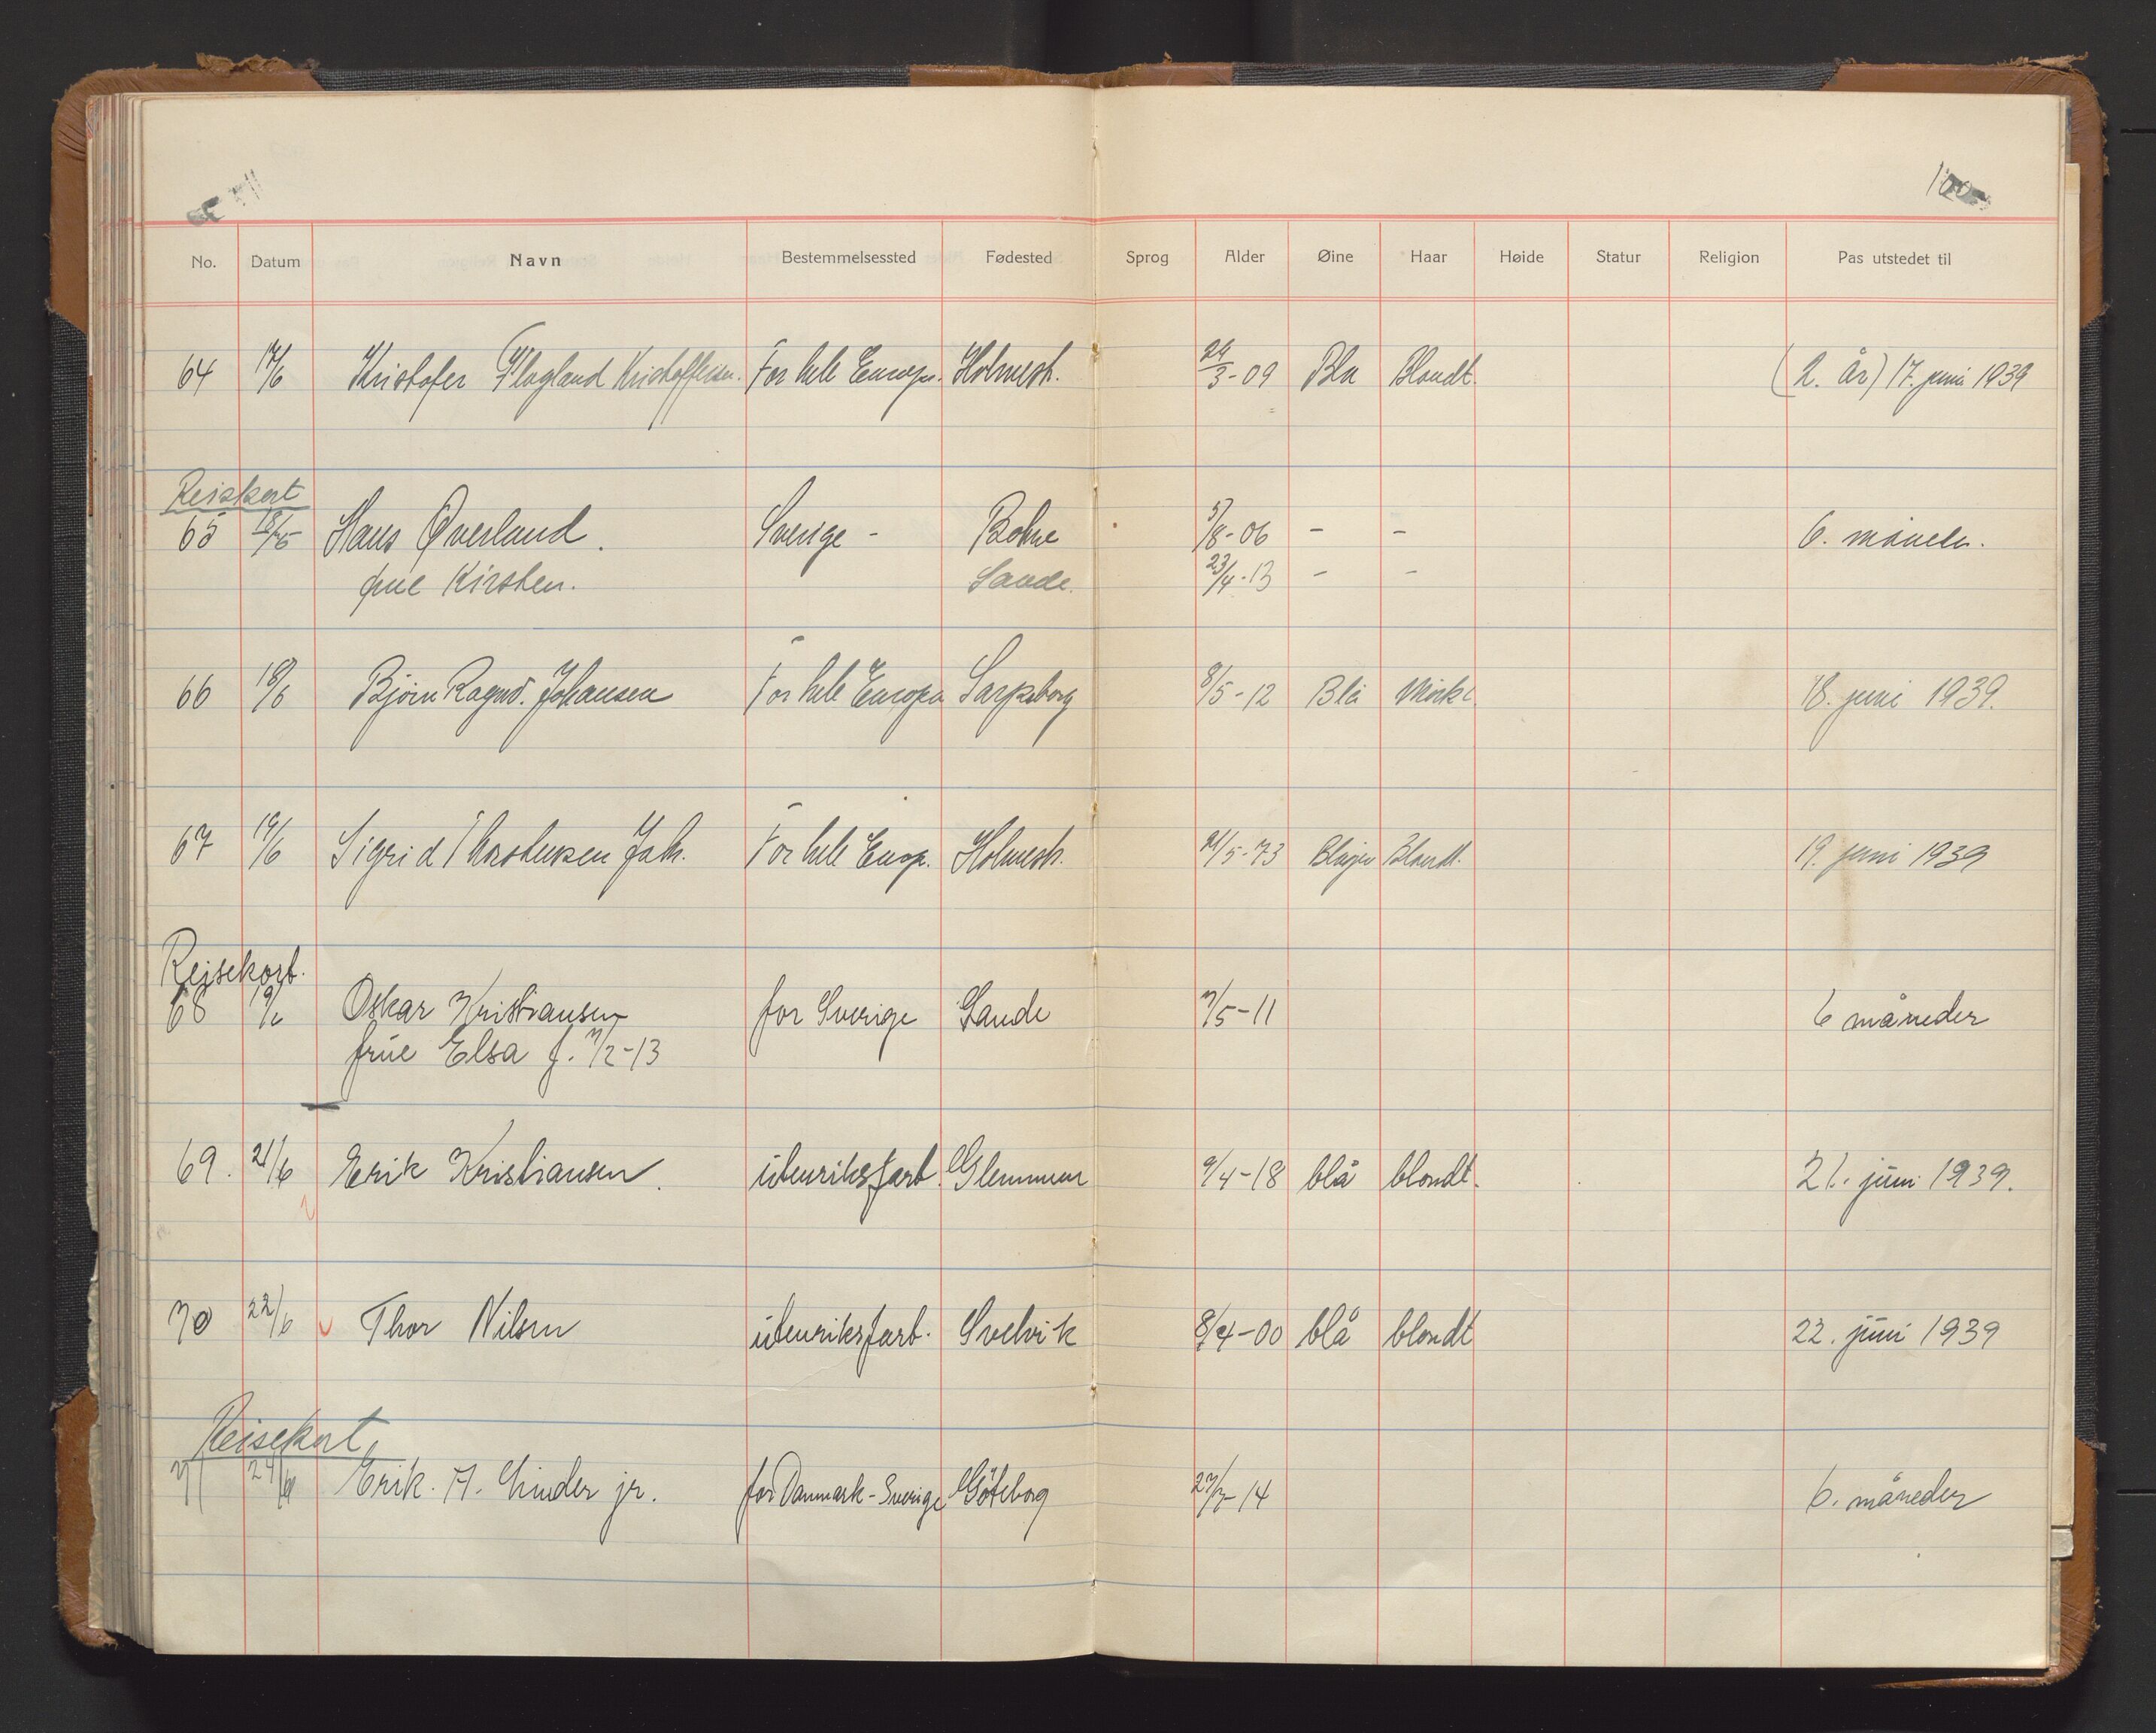 No. Datum Navn Bestemmelsessted Fødested Sprog Alder Øine Haar Høide Statur Religion Pas utstedet til
64 17/6 Kristofer Flogland Kristoffersen. For hele Europ. Holmest. 24/3-09 Bla Blondt. (2. år) 17. juni 1939
Reisekort
65 Hans Øverland. Sverige - Botne 5/8-06 - - 6. måneder.
frue Kirsten. Sande. 23/4-13 - -
66 18/6 Bjørn Ragnv. Johansen For hele Europa Sarpsborg 8/5-12 Blå Mørkt. 18. juni 1939.
67 19/6 Sigrid Thorstensen For hele Europ. Holmest. 21/5-73 Blondt. 19. juni 1939
Reisekort.
68 19/6 Oskar Kristiansen for Sverige Sande 7/5-11 6 måneder
frue Elsa f. 7/2-13
69. 21/6 Erik Kristiansen. utenriksfart. Glemmen 9/4-18 blå blondt. 21. juni 1939.
70 22/6 Thor Nilsen utenriksfart. Svelvik 8/4-00 blå blondt 22. juni 1939
Reisekort,
71 24/6 Erik. A. jr. for Danmark-Sverige Göteborg 27/7-14 6. måneder